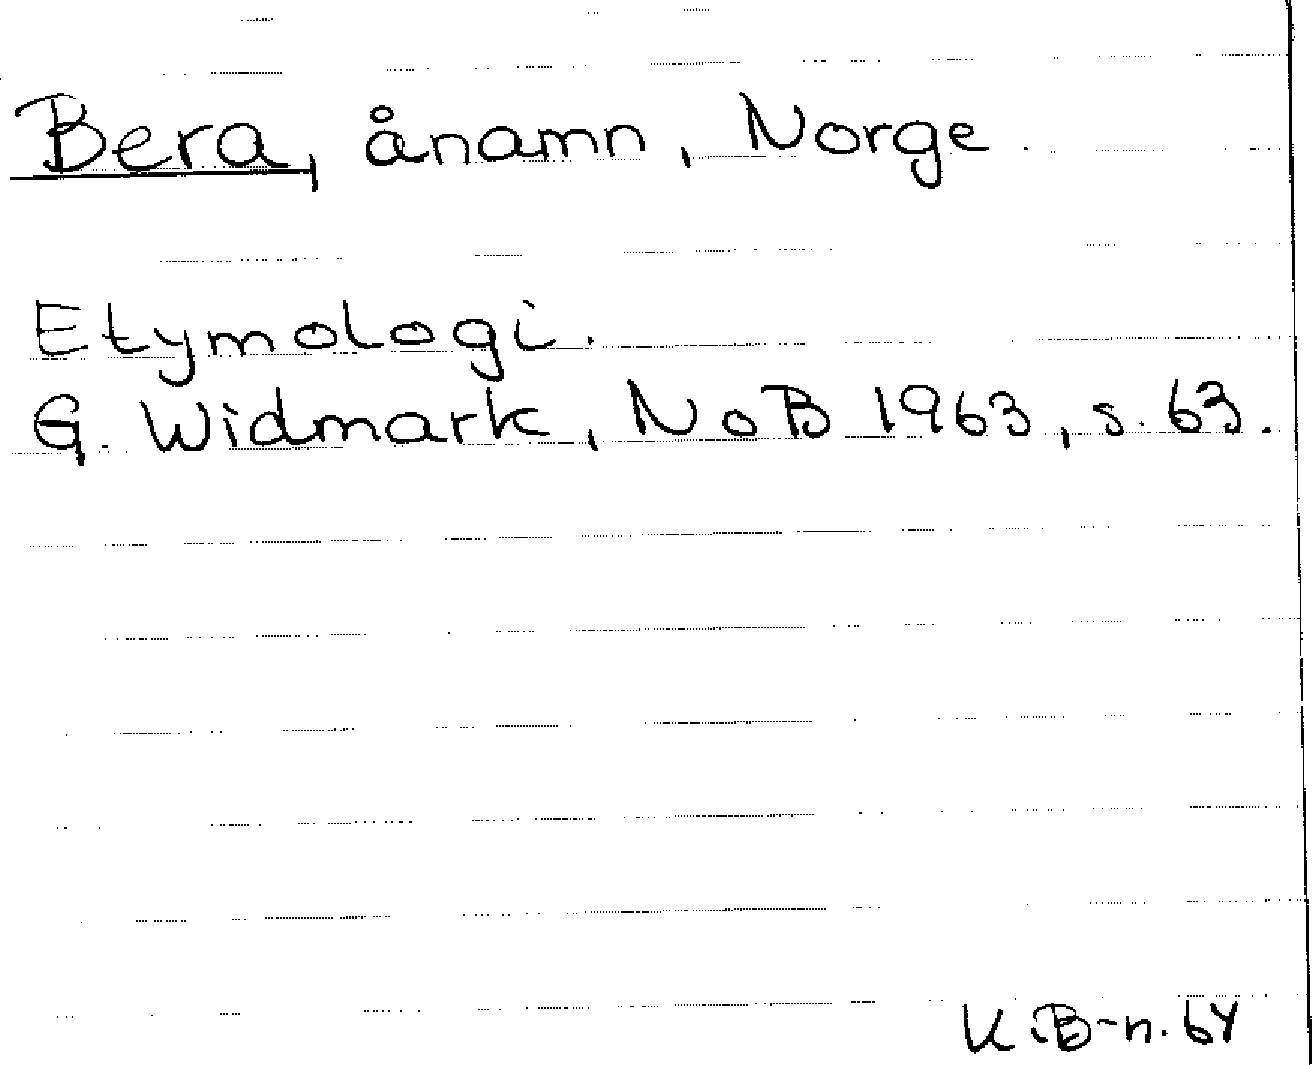 Bera, ånamn, Norge
Etymologi.
G. Widmark, NoB 1963, s. 63.
K.B-n. 64